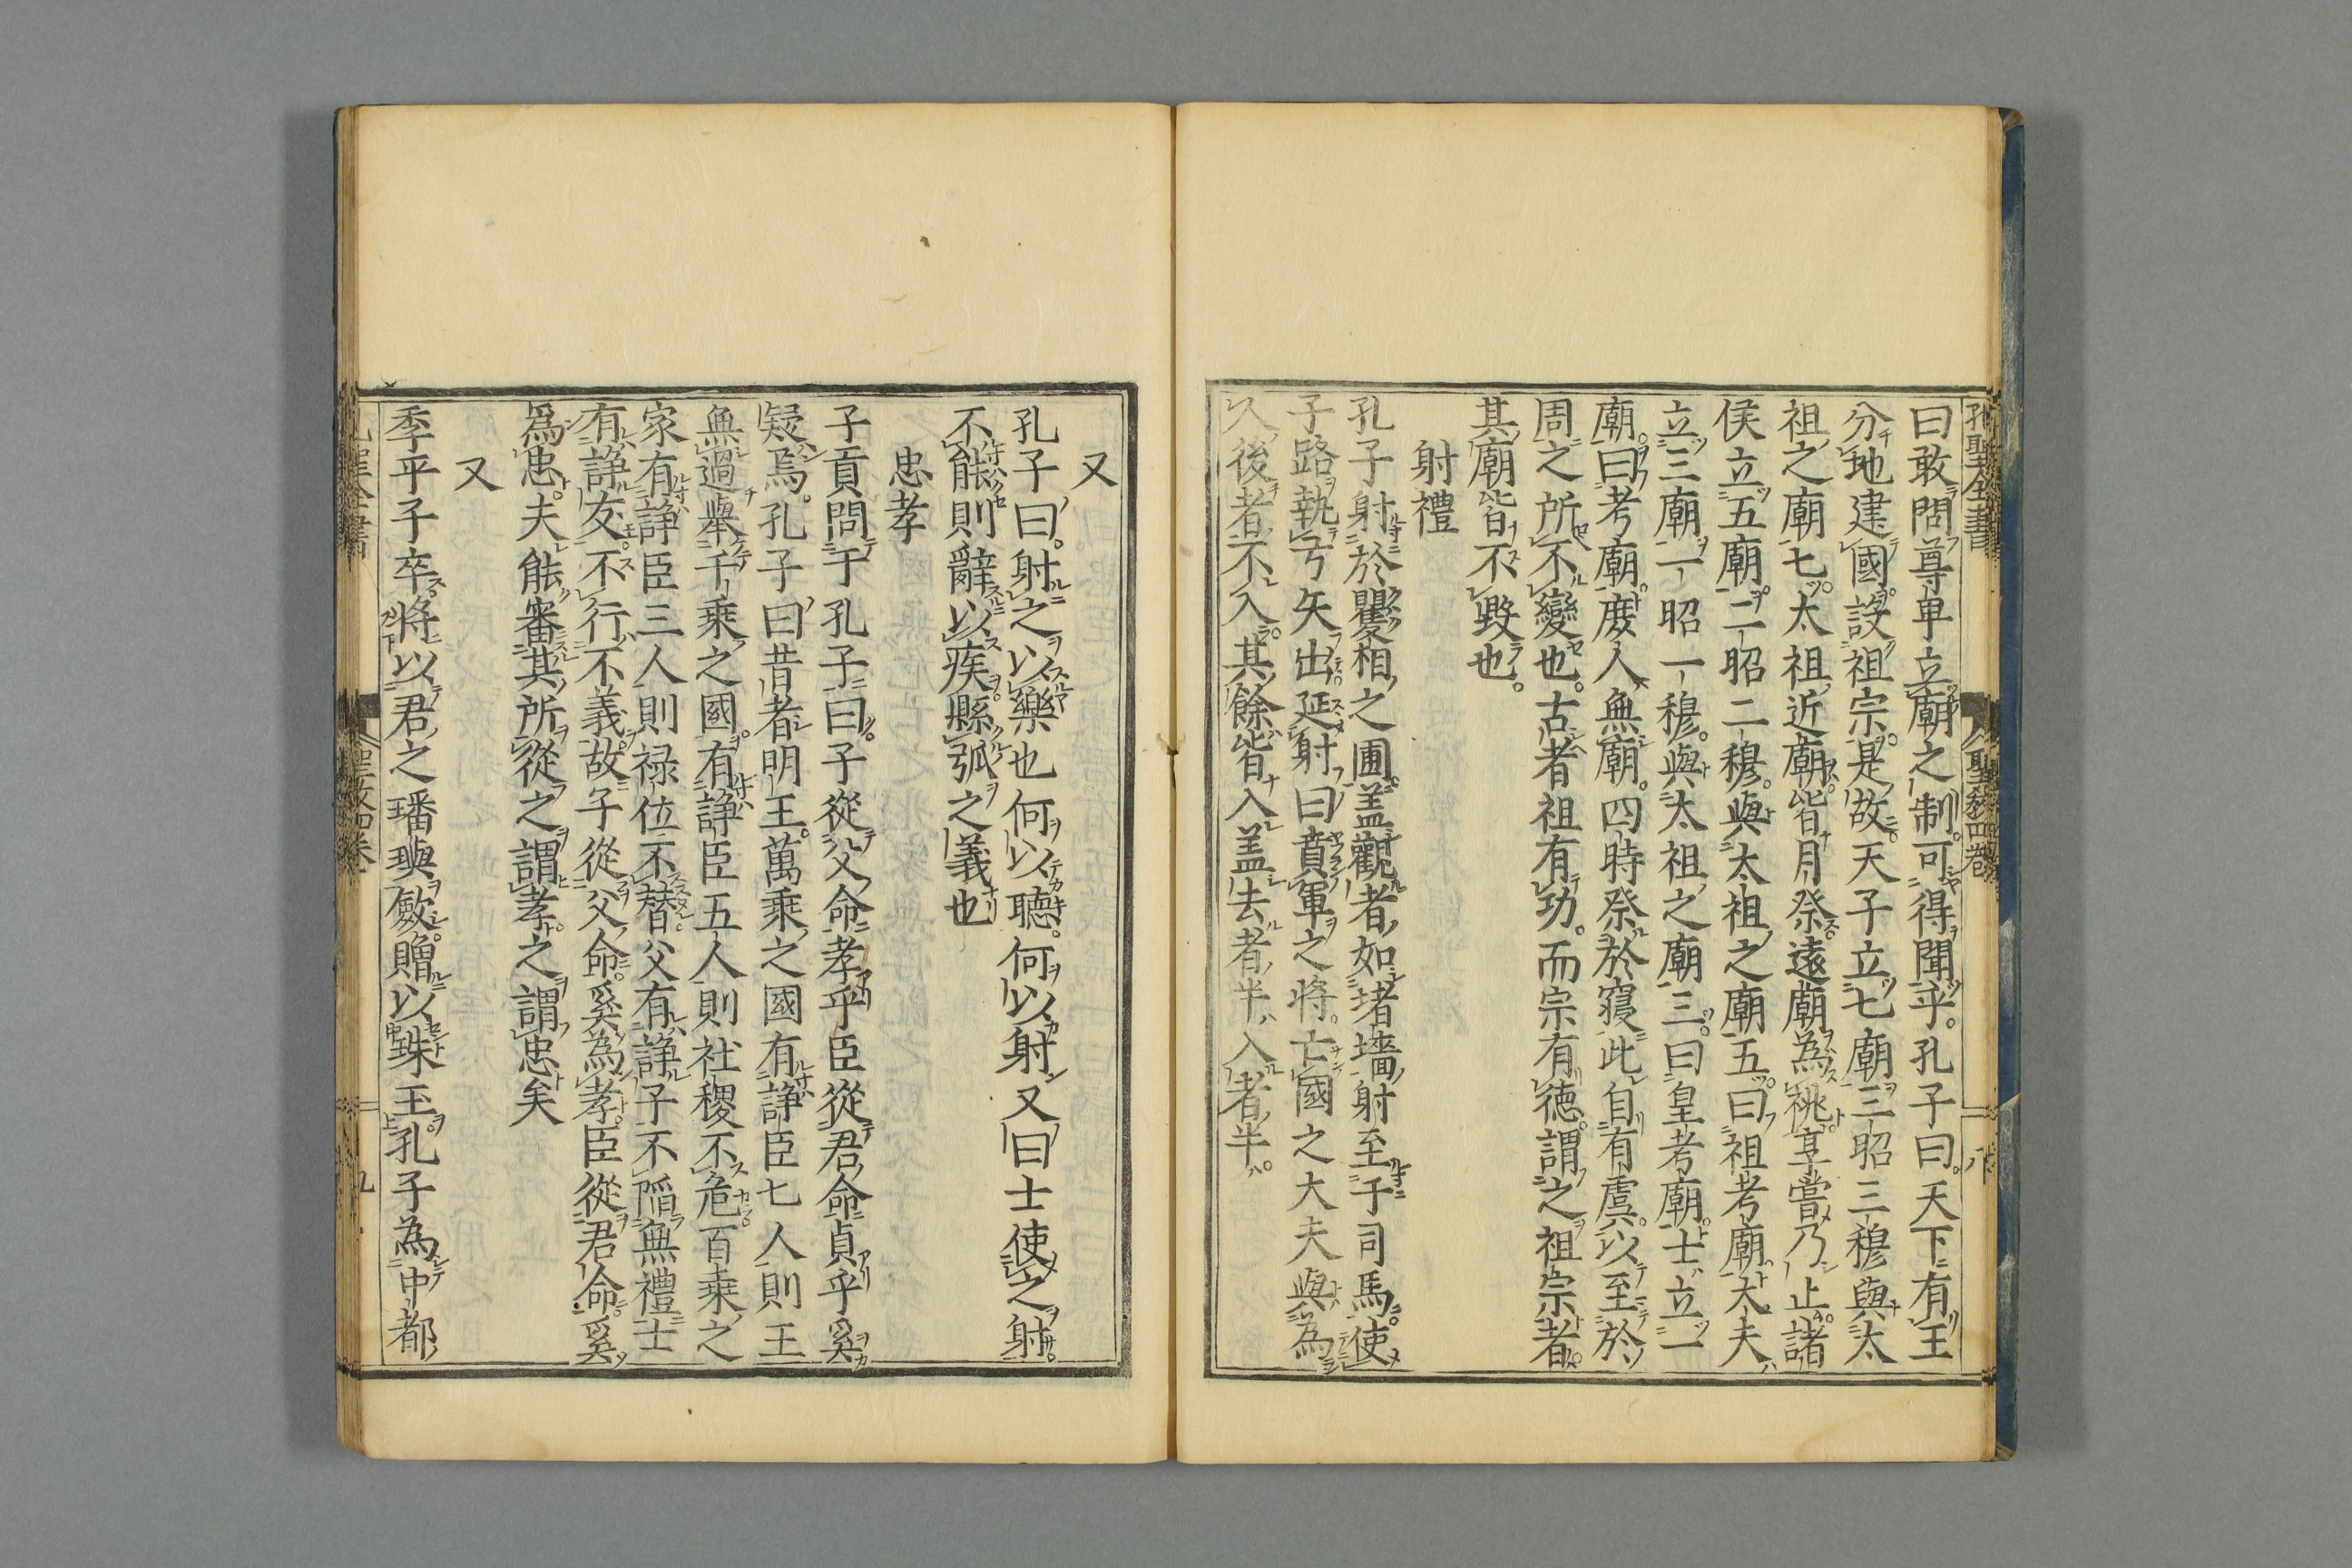 孔聖全書
聖教四巻
八
曰敢問尊卑立廟之制可得聞乎。孔子曰。天下有王
分地建國。設祖宗。是故天子立七廟三昭三穆與太
祖之廟七。太祖近廟皆月祭。遠廟為祧。享嘗乃止。諸
侯立五廟。二昭二穆。與太祖之廟五。曰祖考廟。大夫
立三廟。一昭一穆。與太祖之廟三。曰皇考廟。士立一
廟。曰考廟。庶人無廟。四時祭於寢。此自有虞。以至於
周之所不變也。古者祖有功。而宗有徳。謂之祖宗者。
其廟皆不毀也。
射禮
孔子射於矍相之圃。盖觀者如堵墻射至于司馬。使
子路執弓矢出延射曰賁軍之將。亡國之大夫與為
人後者不入。其餘皆入盖去者半入者半。
又
孔子曰。射之以樂也何以聴。何以射又曰士使之射。
不能則辭以疾。縣弧之義也
忠孝
子貢問于孔子曰。子從父命孝乎臣從君命貞乎奚
疑焉。孔子曰昔者明王。萬乘之國有諍臣七人則王
無過舉千乘之國。有諍臣五人則社稷不危。百乗之
家有諍臣三人則禄位不替。父有諍子不陷無禮士
有諍友。不行不義。故子從父命。奚為孝。臣從君命。奚
爲忠。夫能審其所從之謂孝。之謂忠矣
又
季平子卒。將以君之璠璵斂。贈以珠玉。孔子為中都
聖教四巻
九